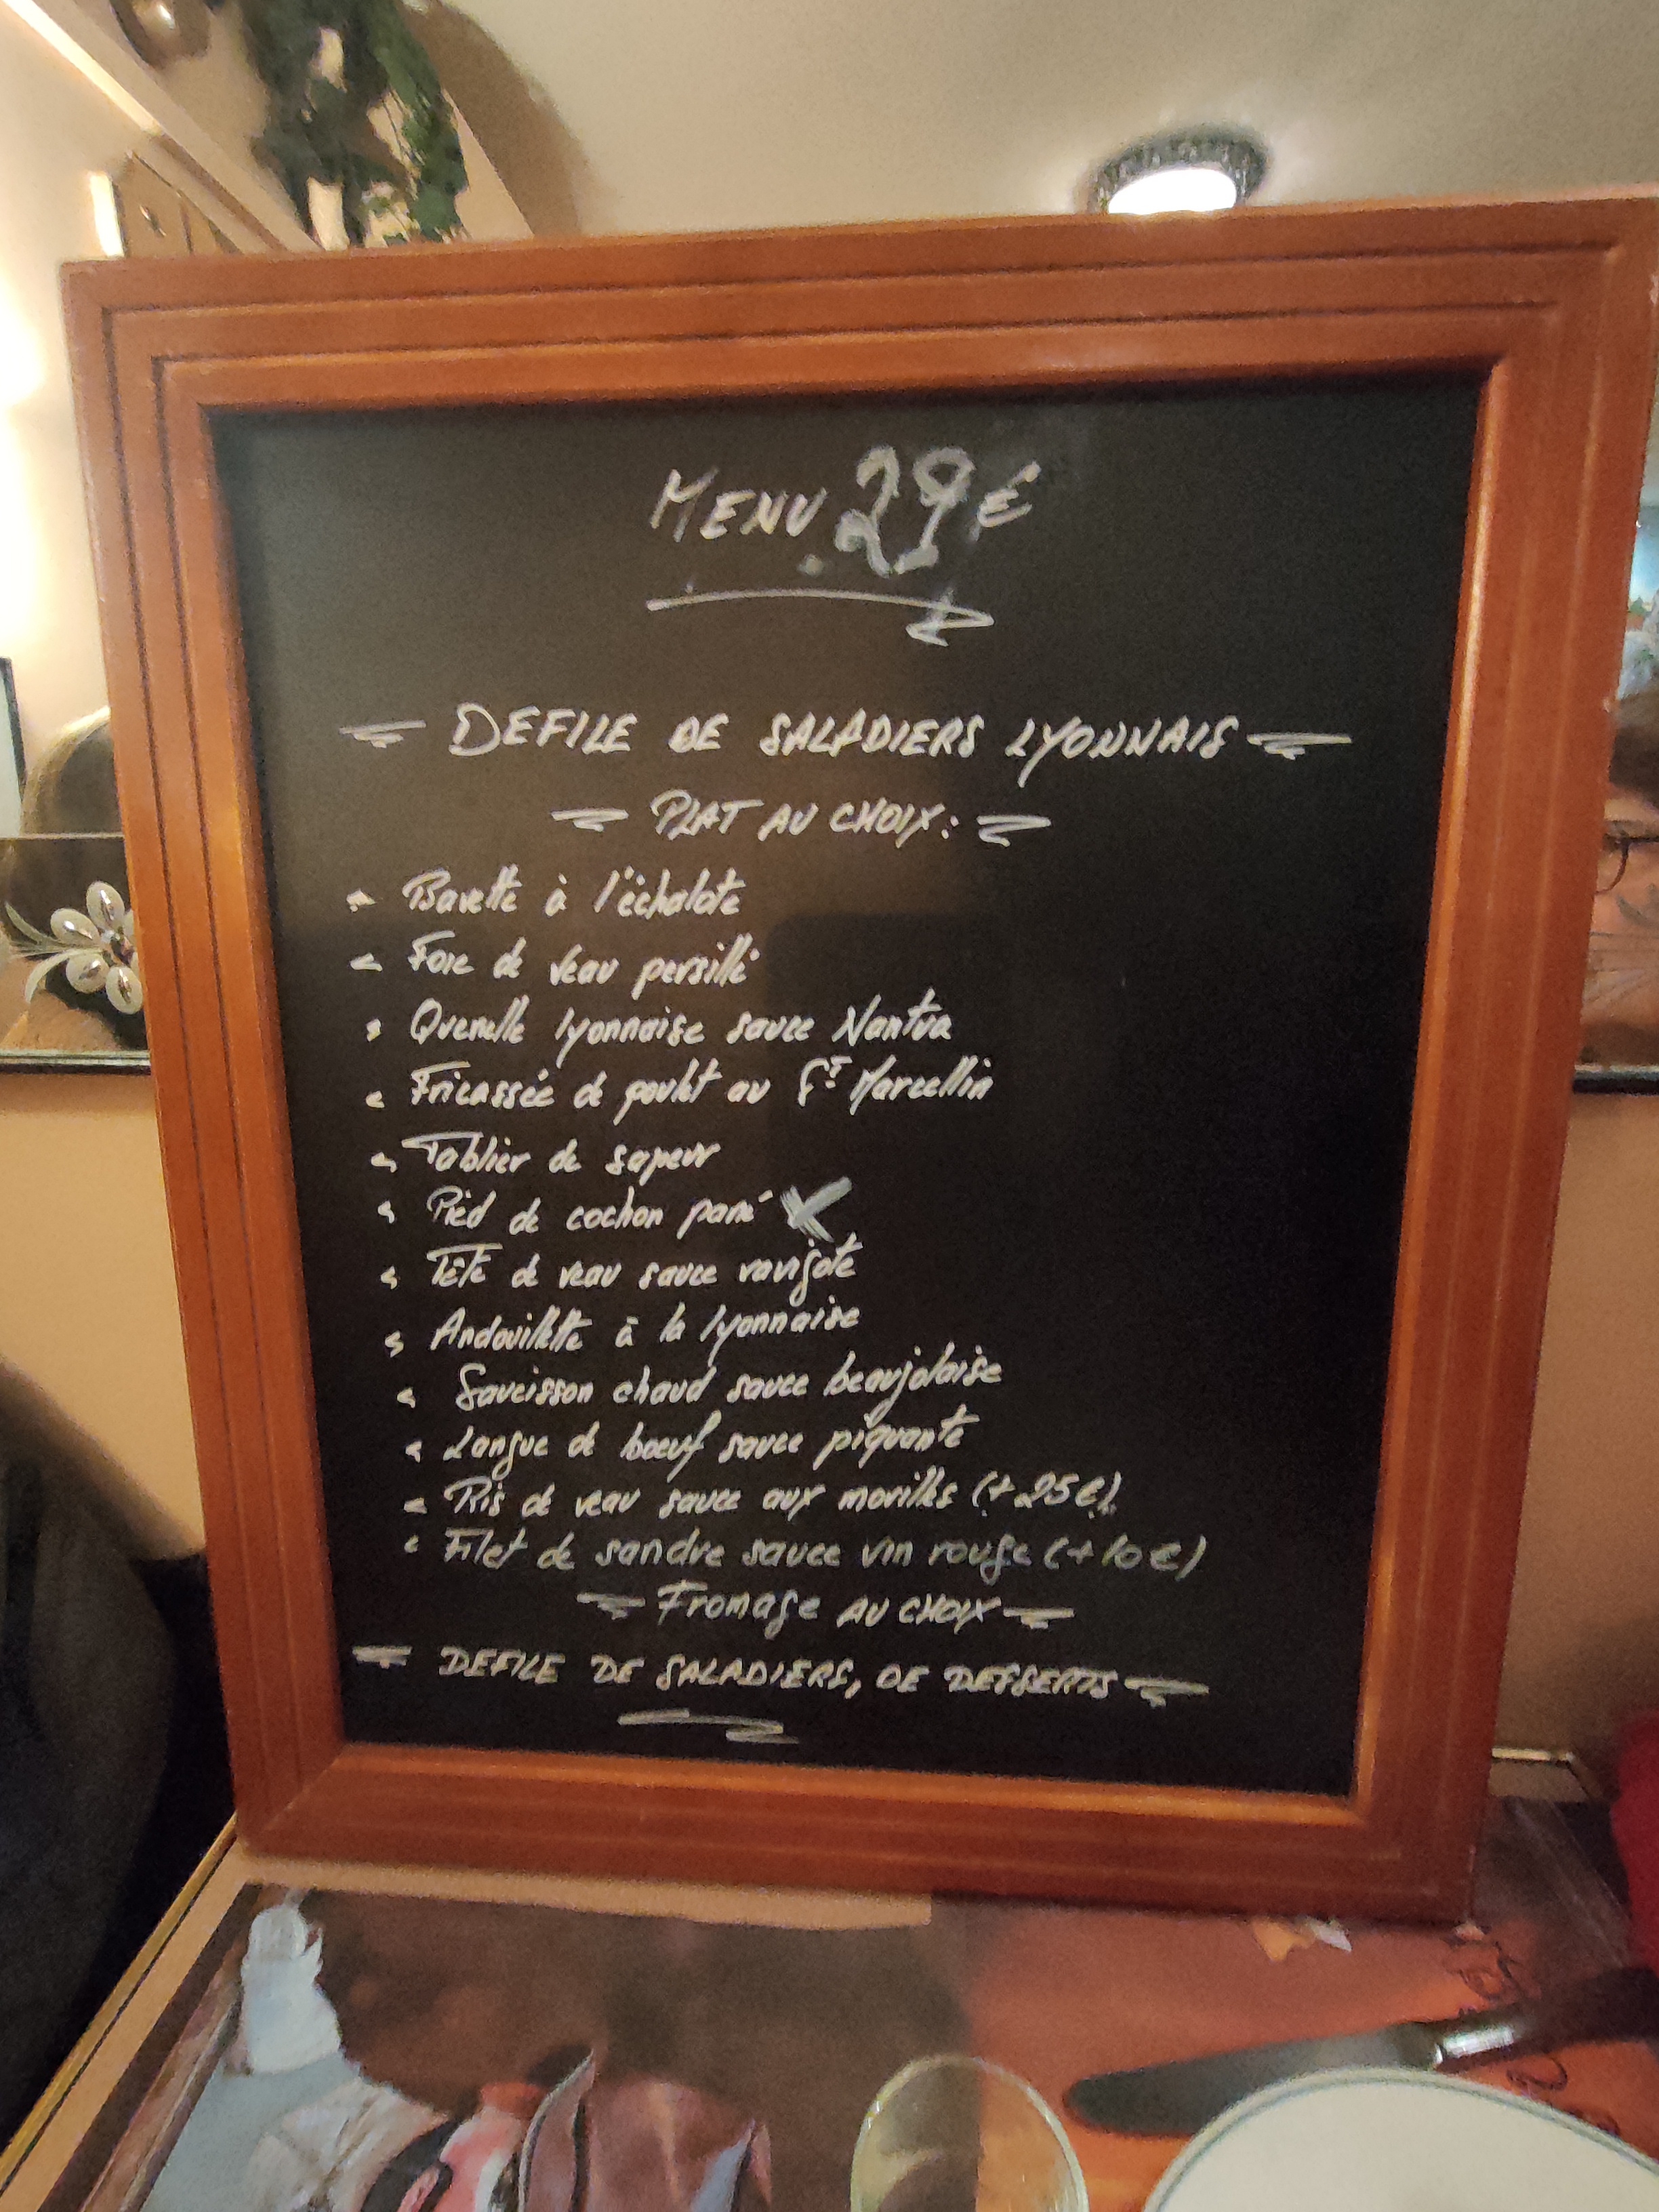 MENU 29€
DEFILE DE SALADIERS LYONNAIS
PLAT AU CHOIX:
- Bavette à l'échalote
- Foie de veau persillé
- Quenelle lyonnaise sauce Nantua
- Fricassée de poulet au St Marcellin
- Tablier de sapeur
- Pied de cochon pané X
- Tête de veau sauce ravigote
- Andouillette à la lyonnaise
- Saucisson chaud sauce beaujolaise
- Langue de boeuf sauce piquante
- Ris de veau sauce aux morilles (+25€)
- Filet de sandre sauce vin rouge (+10€)
Fromage AU CHOIX
DEFILE DE SALADIERS, DE DESSERTS